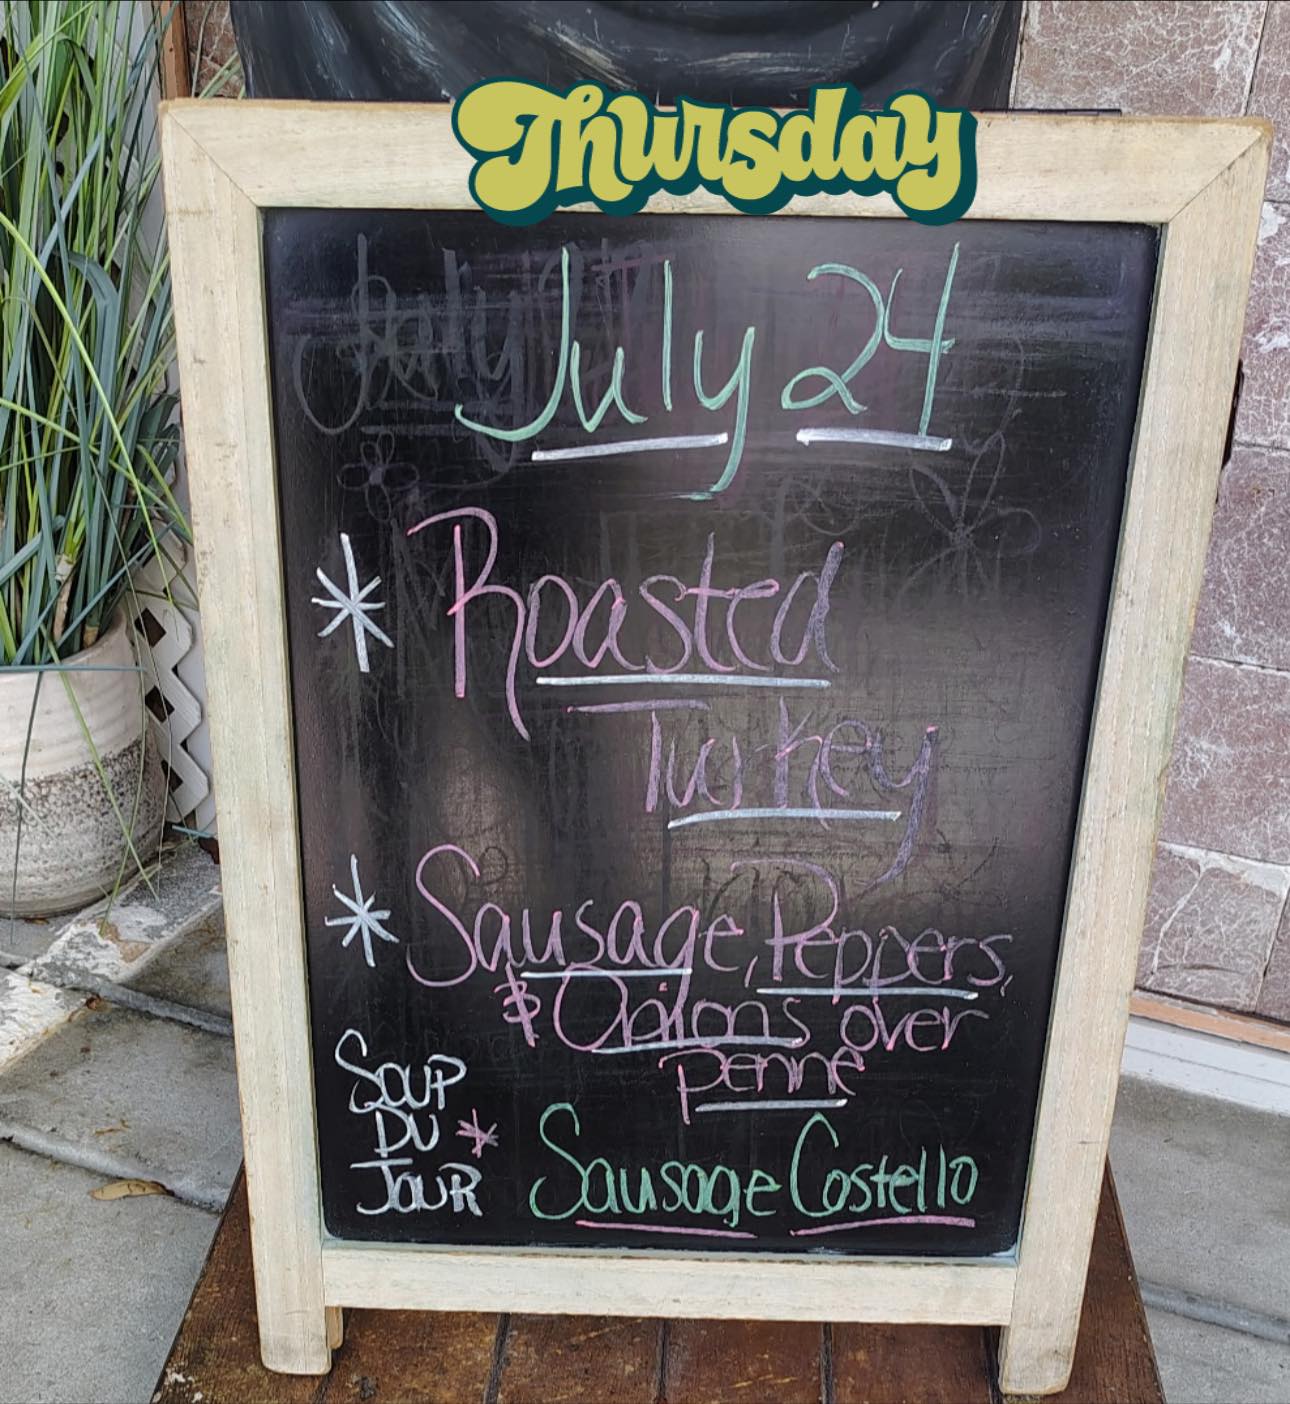 Thursday
July 24
* Roasted
Turkey
* Sausage, Peppers,
& Onions over
penne
SOUP
DU *
JOUR
Sausage Costello